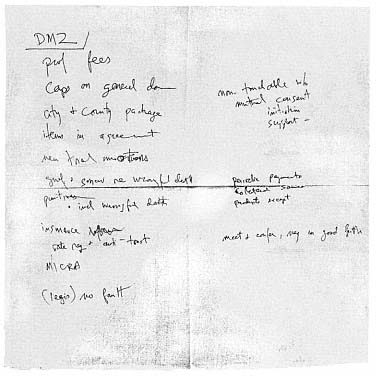 DMZ
prof fees
Caps on general
city + County package
items in agreement
new trial motions
grief + sorrow re wrongful death
punitives
• incl wrongful death
insurance
rate reg + anti-trust
MICRA
(legis) no fault
non tradable w/o
mutual consent
initiation
support -
periodic payments
collateral source
products except
meet + confer, neg in good faith